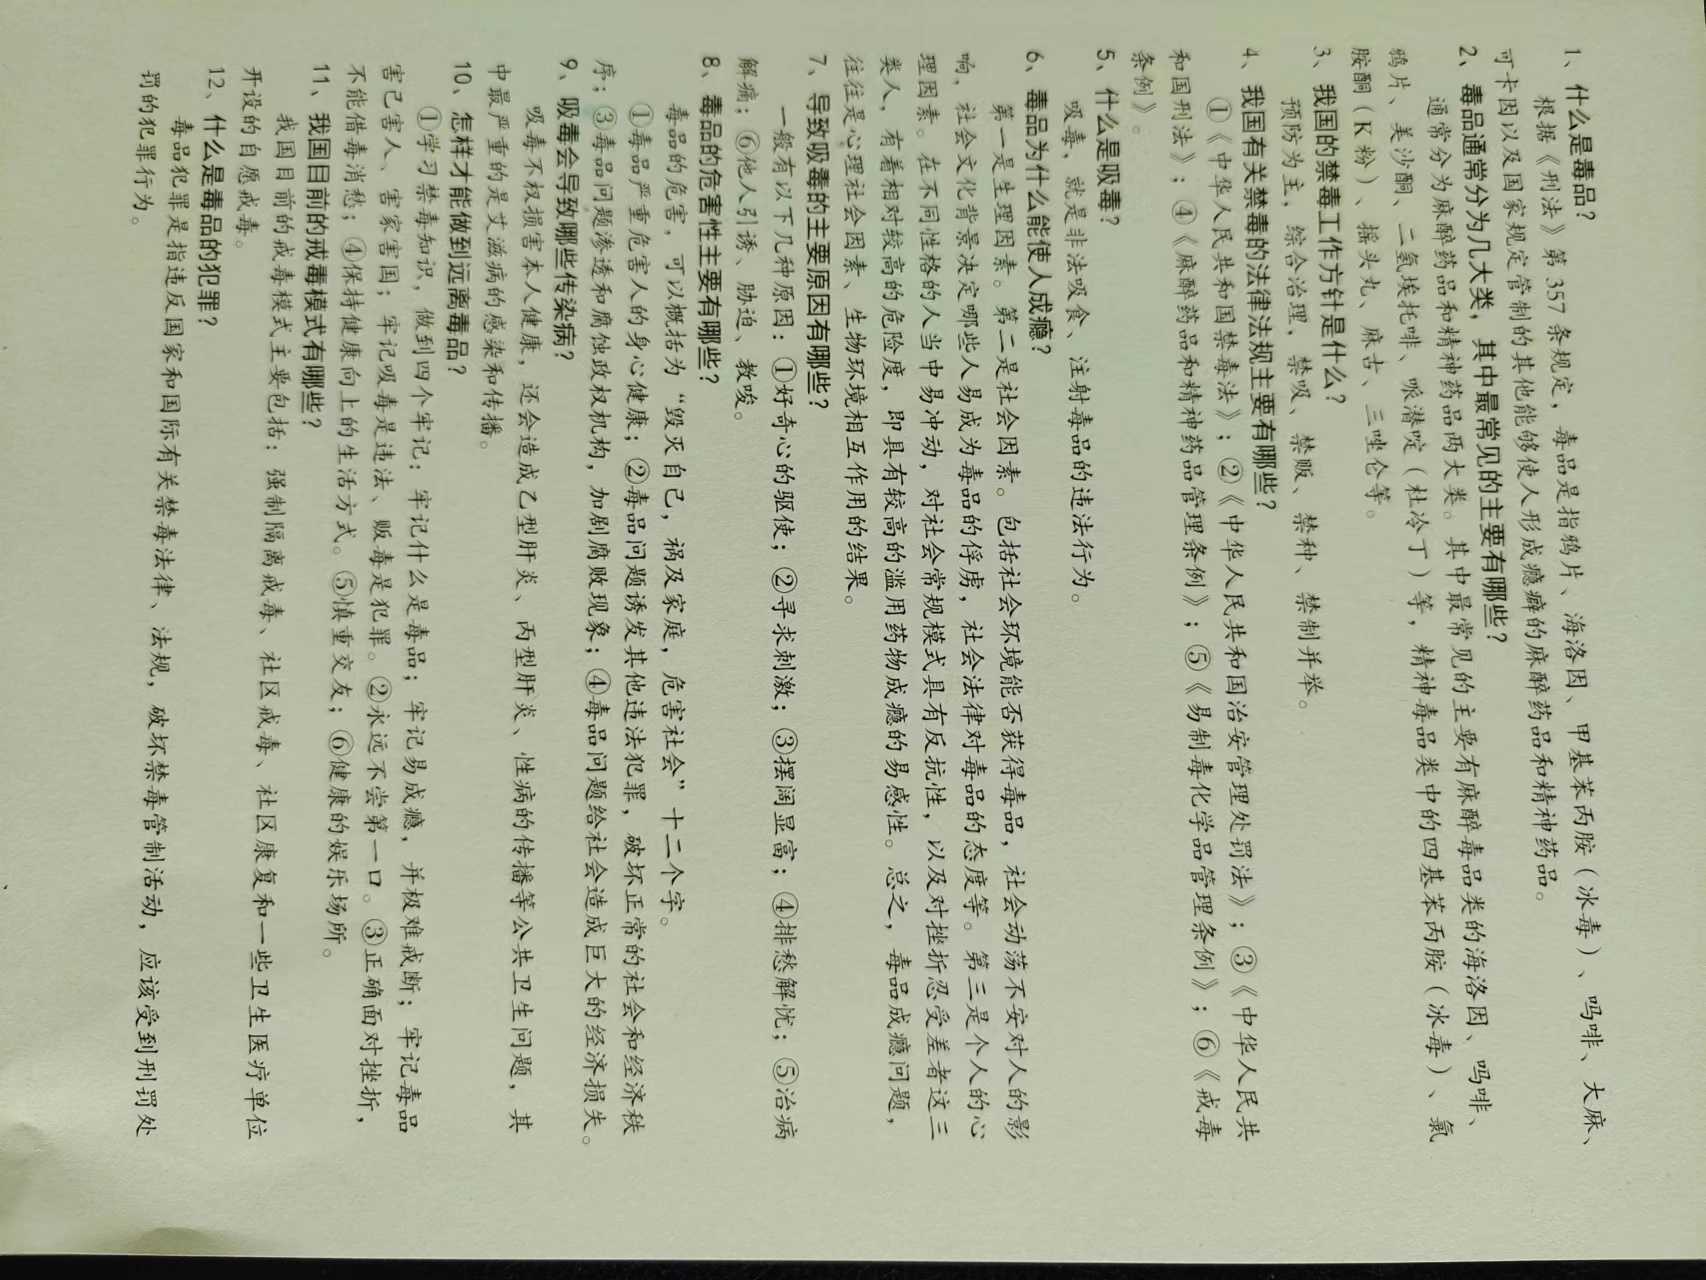 1、什么是毒品？
根据《刑法》第 357 条规定，毒品是指鸦片、海洛因、甲基苯丙胺（冰毒）、吗啡、大麻、
可卡因以及国家规定管制的其他能够使人形成瘾癖的麻醉药品和精神药品。
2、毒品通常分为几大类，其中最常见的主要有哪些？
通常分为麻醉药品和精神药品两大类。其中最常见的主要有麻醉毒品类的海洛因、吗啡、
鸦片、美沙酮、二氢埃托啡、哌潜啶（杜冷丁）等，精神毒品类中的四基苯丙胺（冰毒）、氯
胺酮（K 粉）、摇头丸、麻古、三唑仑等。
3、我国的禁毒工作方针是什么？
预防为主，综合治理，禁吸、禁贩、禁种、禁制并举。
4、我国有关禁毒的法律法规主要有哪些？
①《中华人民共和国禁毒法》；②《中华人民共和国治安管理处罚法》；③《中华人民共
和国刑法》；④《麻醉药品和精神药品管理条例》；⑤《易制毒化学品管理条例》；⑥《戒毒
条例》。
5、什么是吸毒？
吸毒，就是非法吸食、注射毒品的违法行为。
6、毒品为什么能使人成瘾？
第一是生理因素。第二是社会因素。包括社会环境能否获得毒品，社会动荡不安对人的影
响，社会文化背景决定哪些人易成为毒品的俘虏，社会法律对毒品的态度等。第三是个人的心
理因素。在不同性格的人当中易冲动，对社会常规模式具有反抗性，以及对挫折忍受差者这三
类人，有着相对较高的危险度，即具有较高的滥用药物成瘾的易感性。总之，毒品成瘾问题，
往往是心理社会因素、生物环境相互作用的结果。
7、导致吸毒的主要原因有哪些？
一般有以下几种原因：①好奇心的驱使；②寻求刺激；③摆阔显富；④排愁解忧；⑤治病
解痛；⑥他人引诱、胁迫、教唆。
8、毒品的危害性主要有哪些？
毒品的危害，可以概括为“毁灭自己，祸及家庭，危害社会”十二个字。
①毒品严重危害人的身心健康；②毒品问题诱发其他违法犯罪，破坏正常的社会和经济秩
序；③毒品问题渗透和腐蚀政权机构，加剧腐败现象；④毒品问题给社会造成巨大的经济损失。
9、吸毒会导致哪些传染病？
吸毒不权损害本人健康，还会造成乙型肝炎、丙型肝炎、性病的传播等公共卫生问题，其
中最严重的是艾滋病的感染和传播。
10、怎样才能做到远离毒品？
①学习禁毒知识，做到四个牢记：牢记什么是毒品；牢记易成瘾，并极难戒断；牢记毒品
害己害人、害家害国；牢记吸毒是违法、贩毒是犯罪。②永远不尝第一口。③正确面对挫折，
不能借毒消愁；④保持健康向上的生活方式。⑤慎重交友；⑥健康的娱乐场所。
11、我国目前的戒毒模式有哪些？
我国目前的戒毒模式主要包括：强制隔离戒毒、社区戒毒、社区康复和一些卫生医疗单位
开设的自愿戒毒。
12、什么是毒品的犯罪？
毒品犯罪是指违反国家和国际有关禁毒法律、法规，破坏禁毒管制活动，应该受到刑罚处
罚的犯罪行为。